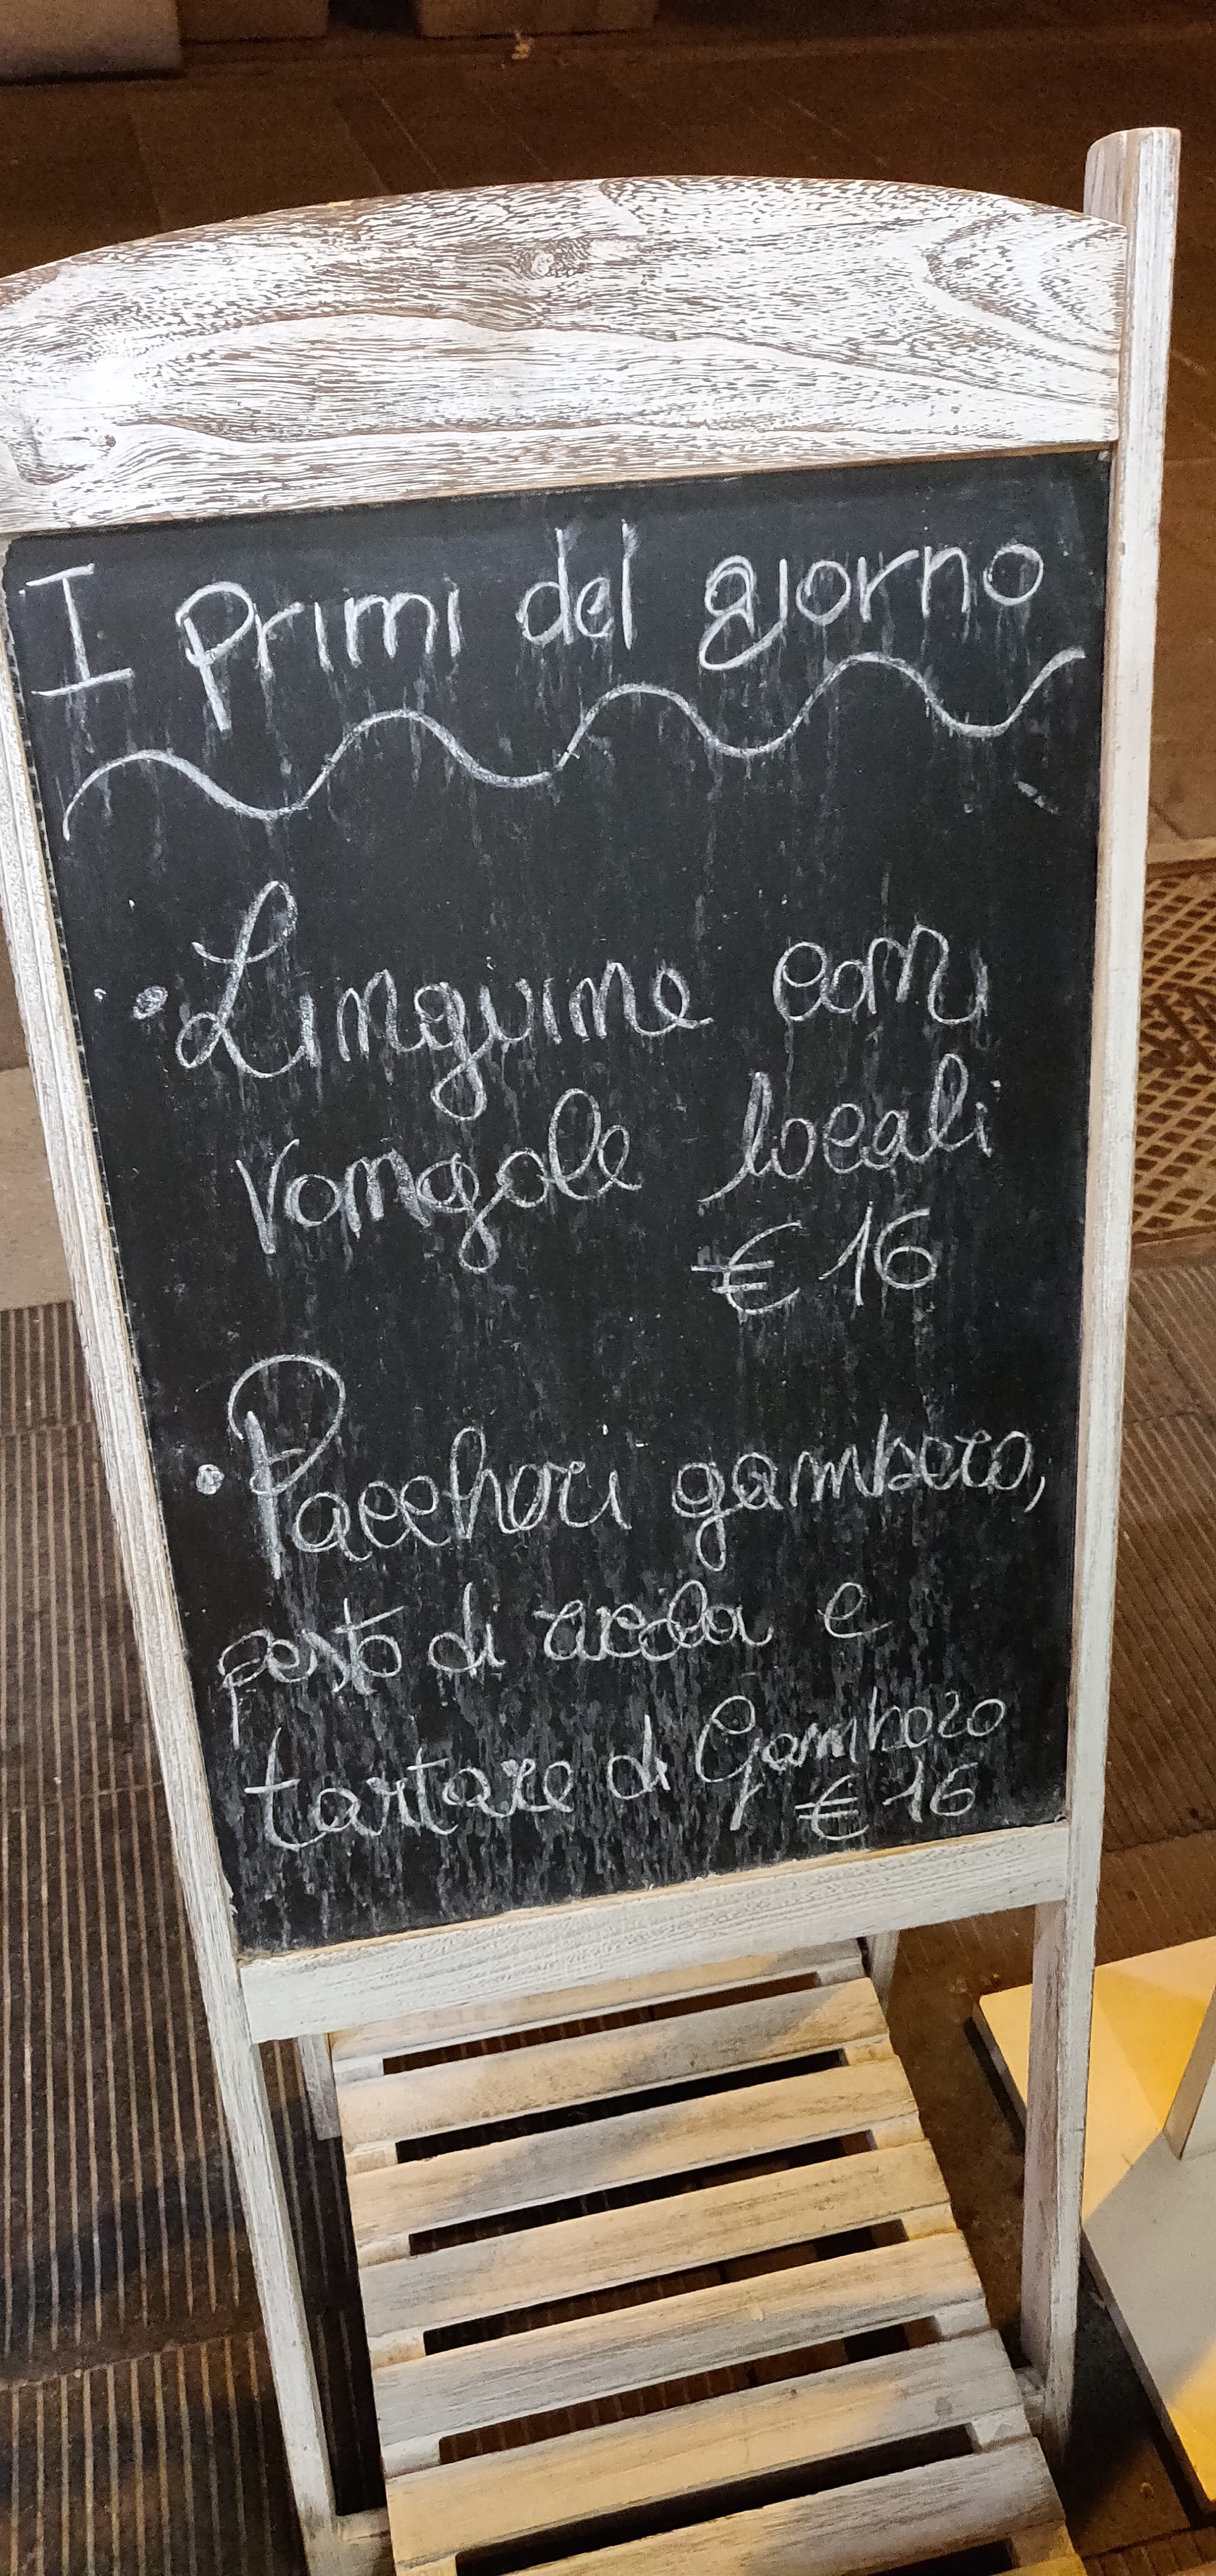 I Primi del giorno
• Linguine con
vongole locali
€ 16
• Paccheri gambero,
pesto di e
tartare di Gambero
€ 16